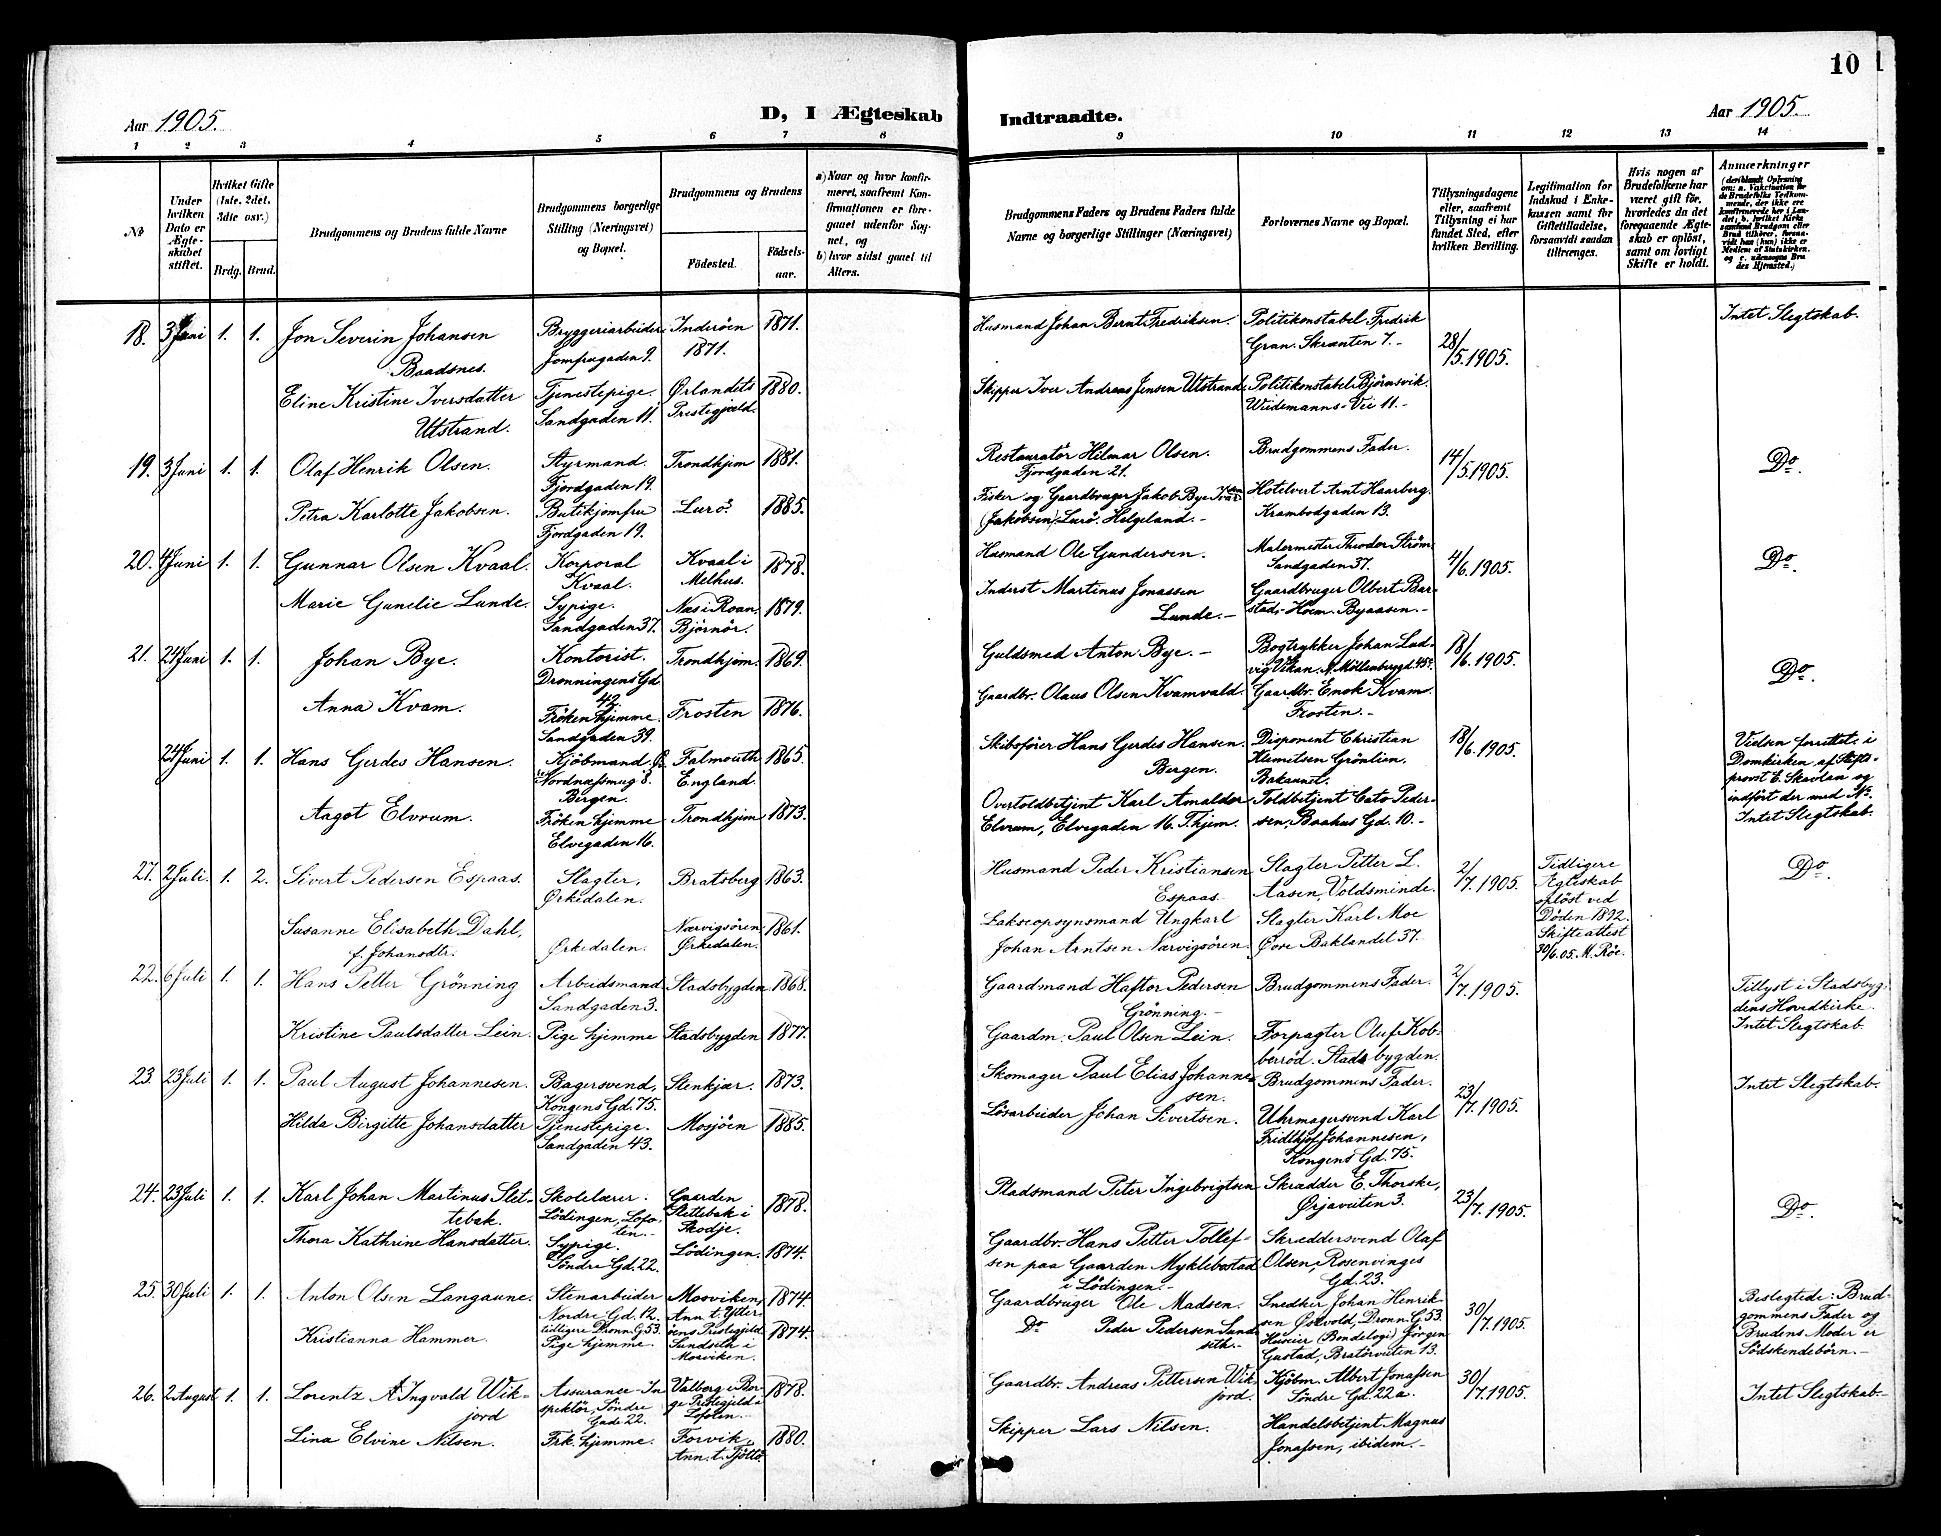 10
Aar 1905.
D, I Ægteskab
Indtraadte.
Aar 1905.
1 2 3 4 5 6 7 8 9 10 11 12 13 14
№
Under hvilken Dato er Ægteskabet stiftet.
Hvilket Gifte (1ste, 2det, 3die osv.)
Brdg. Brud.
Brudgommens og Brudens fulde Navne
Brudgommens borgerlige Stilling (Næringsvei) og Bopæl.
Brudgommens og Brudens
Fødested. Fødselsaar.
a) Naar og hvor konfirmeret, saafremt Konfirmationen er foregaaet udenfor Sognet, og
b) hvor sidst gaaet til Alters.
Brudgommens Faders og Brudens Faders fulde Navne og borgerlige Stillinger (Næringsvei)
Forlovernes Navne og Bopæl.
Tillysningsdagene eller, saafremt Tillysning ei har fundet Sted, efter hvilken Bevilling.
Legitimation for Indskud i Enkekassen samt for Giftetilladelse, forsaavidt saadan tiltrænges.
Hvis nogen af Brudefolkene har været gift før, hvorledes da det foregaaende Ægteskab er opløst, samt om lovligt Skifte er holdt.
Anmærkninger
18. 3 Juni 1. 1. Jon Severin Johansen
Baadsnes.
Bryggeriarbeider
Jomfrugaden 9.
Inderøen
1871.
1871.
Husmand Johan Bernt Fredriksen.
Politikonstabel Fredrik
Gran. Skrænten 7.-
28/5. 1905.
Intet Slegtskab.
Eline Kristine Iversdatter
Utstrand.
Tjenestepige.
Sandgaden 11.
Ørlandets
Prestegjæld.
1880.
Skipper Iver Andreas Jensen Utstrand.
Politikonstabel Bjørnsvik.
Wiedemanns-Vei 11.-
19. 3 Juni 1. 1. Olaf Henrik Olsen.
Styrmand.
Fjordgaden 19.
Trondhjem 1881.
Restauratør Hilmar Olsen.
Fjordgaden 21.
Brudgommens Fader.
14/5. 1905.
Do.
Petra Karlotte Jakobsen.
Butikjomfru
Fjordgaden 19.
Lurø 1885.
Fisker og Gaardbruger Jakob Bye
(Jakobsen) Lurø. Helgeland.-
Hotelvert Arnt Haarberg.
Krambodgaden 13.
20. 4 Juni 1. 1. Gunnar Olsen Kvaal.
Korporal
Kvaal.
Kvaal i
Melhus.
1878.
Husmand Ole Gundersen.
Malermester Theodor Strøm
Sandgaden 37.
4/6. 1905.
Do.
Marie Gunelie Lunde.
Sypige.
Sandgaden 37.
Næs i Roan.
Bjørnør.
1879.
Inderst Martinus Jonassen
Lunde.-
Gaardbruger Olbert Bar-
stad- Hoem. Byaasen.-
21. 24 Juni 1. 1. Johan Bye.
Kontorist.
Dronningens Gd.
42.
Trondhjem. 1869.
Guldsmed Anton Bye.-
Bogtrykker Johan Lud-
vig Vikan. N. Møllenberggd. 45.
18/6. 1905.
Do.
Anna Kvam.
Frøken hjemme.
Sandgaden 39.
Frosten 1876.
Gaardbr. Olaus Olsen Kvamvald.
Gaardbr. Enok Kvam.
Frosten.-
24 Juni 1. 1. Hans Gerdes Hansen.
Kjøbmand.
Nordnæssmug 8.
Bergen.
Falmouth
England.
1865.
Skibsfører Hans Gerdes Hansen.
Bergen.
Disponent Christian
Klemetsen Grønlien,
Bakaunet.
18/6. 1905.
Vielsen forrettet i
Domkirken af Stifts-
provst E. Skavlan og
indført der med No.
Intet Slegtskab.
Aagot Elvrum.
Frøken hjemme
Elvegaden 16.
Trondhjem 1873.
Overtoldbetjent Karl Amaldor
Elvrum, Elvegaden 16. T.hjem.
Toldbetjent Cato Peder-
sen, Baahus Gd. 10.-
27. 2 Juli. 1. 2. Sivert Pedersen Espaas.
Slagter,
Ørkedalen.
Bratsberg 1863.
Husmand Peder Kristiansen
Espaas.
Slagter Petter L.
Aasen, Voldsminde.
2/7. 1905.
Tidligere
Ægteskab
opløst ved
Døden 1892.
Skifteattest
30/6.05. M. Röe.
Do.
Susanne Elisabeth Dahl,
f. Johansdtr.
Ørkedalen.
Nærvigsören
Ørkedalen.
1861.
Lakseopsynsmand Ungkarl
Johan Arntsen Nærvigsören.
Slagter Karl Moe
Øvre Baklandet 37.
22. 6 Juli 1. 1. Hans Petter Grönning
Arbeidsmand
Sandgaden 3.
Stadsbygden 1868.
Gaardmand Haftor Pedersen
Grönning.-
Brudgommens Fader.
2/7. 1905.
Tillyst i Stadsbyg-
dens Hovedkirke.
Intet Slegtskab.
Kristine Paulsdatter Lein.
Pige hjemme Stadsbygden 1877.
Gaardm. Paul Olsen Lein.
Forpagter Oluf Kob-
berrød. Stadsbygden.
23. 23 Juli 1. 1. Paul August Johannesen.
Bagersvend,
Kongens Gd. 75.
Stenkjær. 1873.
Skomager Paul Elias Johanne-
sen.
Brudgommens Fader.
23/7. 1905.
Intet Slegtskab.
Hilda Birgitte Johansdatter
Tjenestepige.
Sandgaden 43.
Mosjøen 1885.
Løsarbeider Johan Sivertsen.
Uhrmagersvend Karl
Fridthjof Johannesen,
Kongens Gd. 75.
24. 23 Juli 1. 1. Karl Johan Martinus Slet-
tebak.
Skolelærer.
Lödingen, Lofo-
ten.
Gaarden
Slettebak i
Skodje.
1878.
Pladsmand Peter Ingebrigtsen
Skrædder E. Thorske,
Ørjaveiten 3.
23/7. 1905.
Do.
Thora Kathrine Hansdatter.
Sypige.
Søndre Gd. 22.
Lödingen. 1874.
Gaardbr. Hans Petter Tollef-
sen paa Gaarden Myklebostad
i Lödingen.-
Skræddersvend Olaf
Olsen, Rosenvinges
Gd. 23.
25. 30 Juli 1. 1. Anton Olsen Langaune.
Stenarbeider
Nordre Gd. 12.
tidligere Dronn.G.53.
Mosviken,
Ann. t. Ytter-
öens Prestegjeld
1874.
Gaardbruger Ole Madsen.
Snedker Johan Henrik-
sen Østvold, Dronn. G. 53
30/7. 1905.
Beslegtede: Brud-
gommens Fader og
Brudens Moder er
Södskendebörn.-
Kristianna Hammer.
Pige hjemme.
Sundseth i
Mosviken.
1874.
Do Peder Pedersen Sund-
seth.-
Huseier (Bondelogi) Jørgen
Gustad, Bratörveiten 13.
26. 2 August 1. 1. Lorentz A Ingvald Wik-
jord
Assurance-In-
spektør, Søndre
Gade 22.
Valberg i Bor-
ge Prestegjeld i
Lofoten.
1878.
Gaardbr. Andreas Pettersen Wik-
jord.
Kjøbm. Albert Jonassen
Søndre Gd. 22 a.
30/7. 1905.
Intet Slegtskab.-
Lina Elvine Nilsen.
Frk. hjemme.
Forvik,
Ann. t. Tjøttø.
1880.
Skipper Lars Nilsen.
Handelsbetjent Magnus
Jonassen, ibidem.-